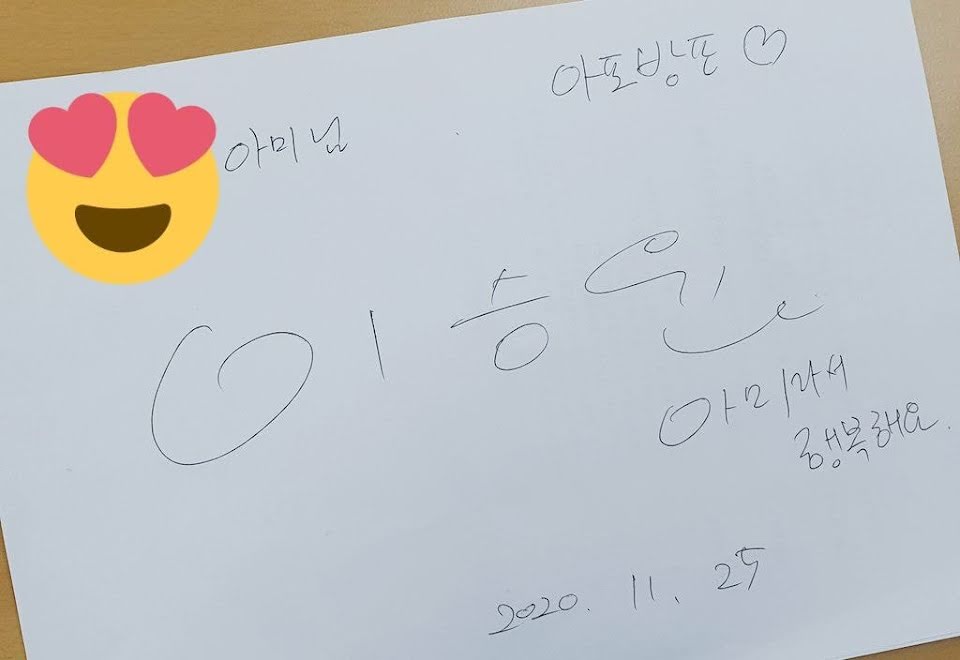 아포방포 ♡
아미님
이승윤
아미라서
행복해요.
2020. 11. 25